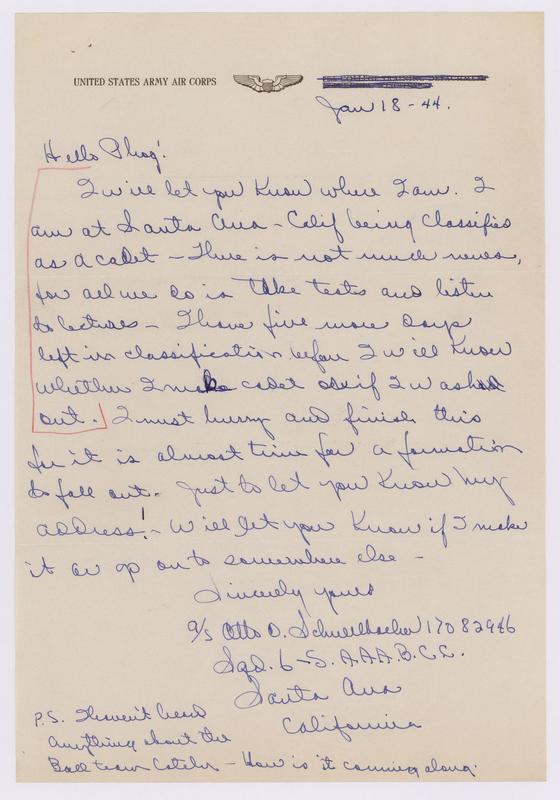 UNITED STATES ARMY AIR CORPS
Jan 18 - 44.
Hello Phog!
I will let you know where I am. I
am at Santa Ana - Calif being classified
as a cadet - There is not much news,
for all we do is take tests and listen
to lectures - I have five more days
left in classification before I will know
whether I make cadet or if I washed
out. I must hurry and finish this
for it is almost time for a formation
to fall out. Just to let you know my
address! - Will let you know if I make
it or go on to somewhere else -
Sincerely yours
A/S Otto O. Schnellbacher 17082946
Sqd. 6-S. A.A.A.B.C.C.
Santa Ana
California
P.S. Haven't heard
anything about the
Ball team Catcher - How is it coming along.